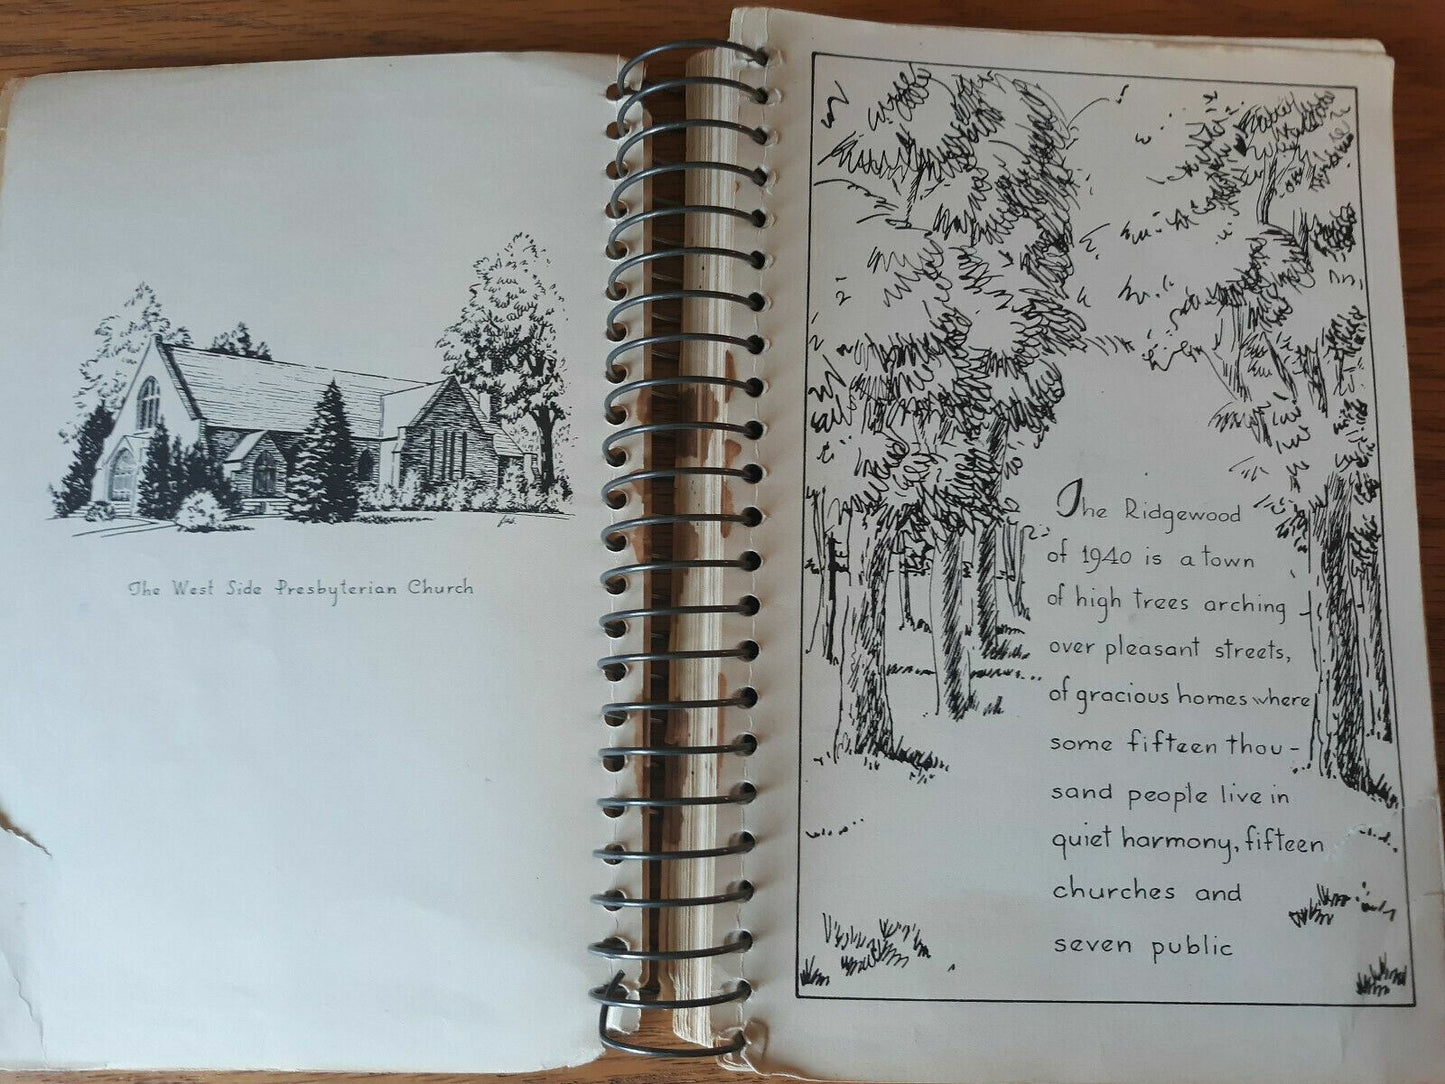 The West Side Presbyterian Church
The Ridgewood
of 1940 is a town
of high trees arching
over pleasant streets,
of gracious homes where
some fifteen thou-
sand people live in
quiet harmony, fifteen
churches and
seven public